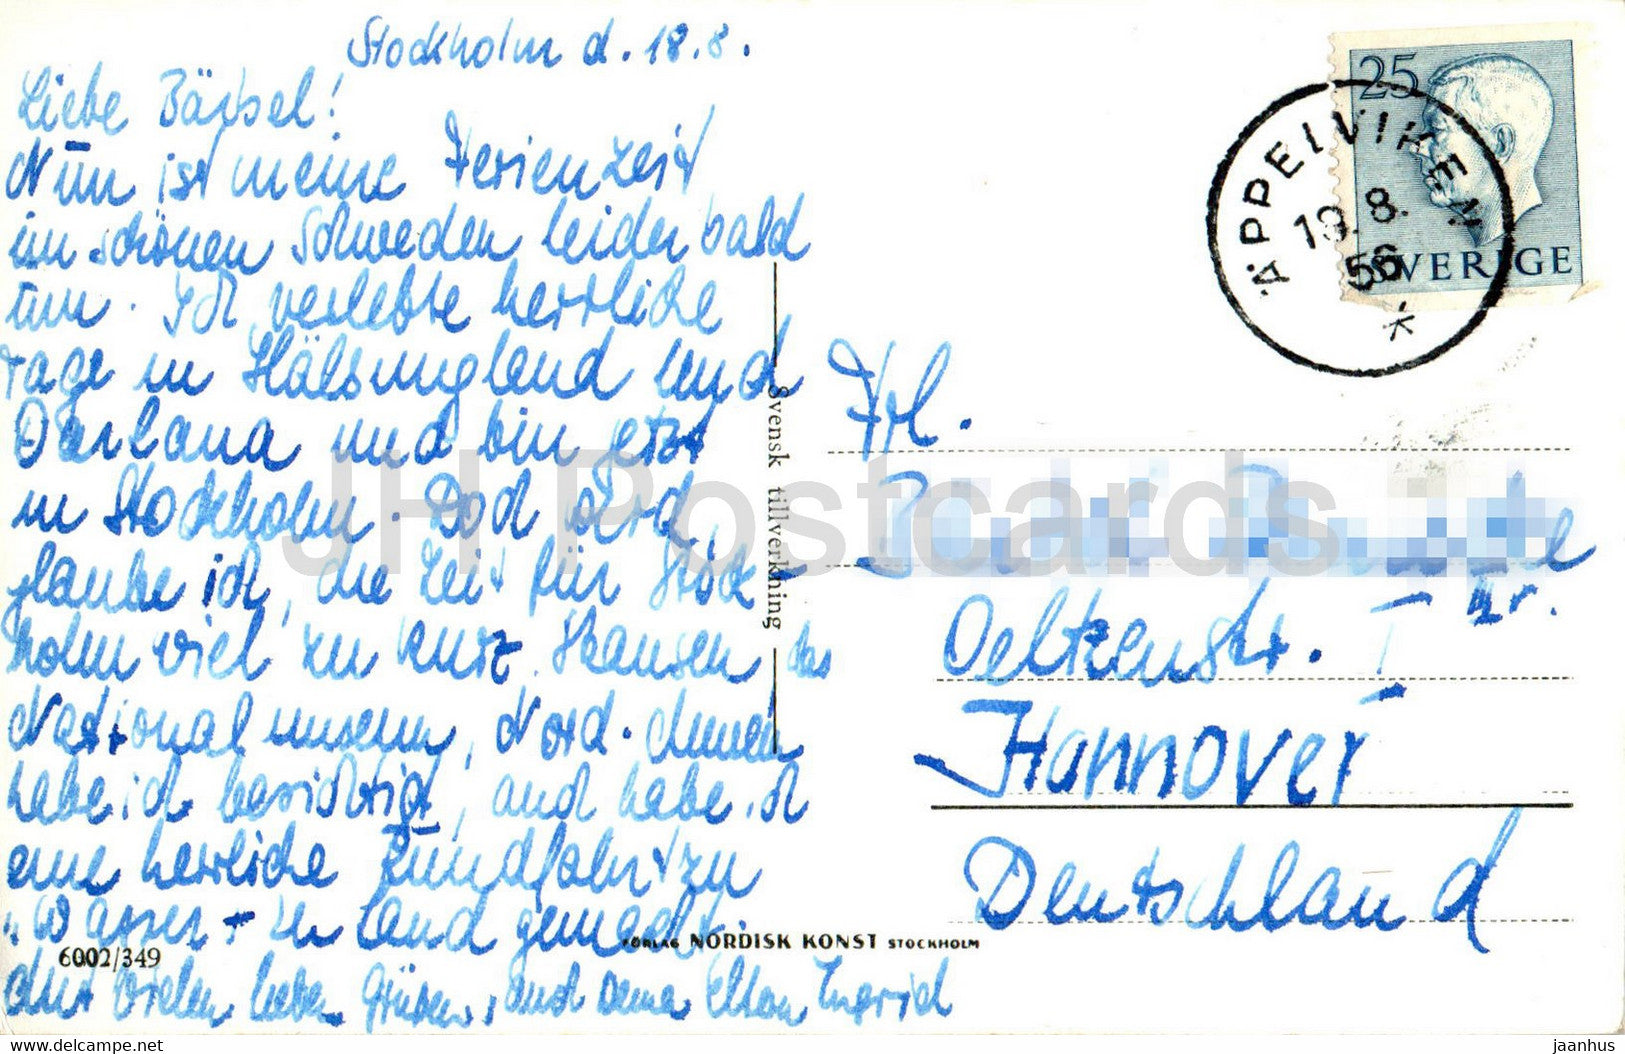 Stockholm d. 18.8.
Liebe Bärbel!
Nun ist meine Ferienzeit
im schönen Schweden leider bald
um. Ich verlebte herrliche
Tage in Hälsingland und
Darlana und bin jetzt
in Stockholm. Doch wird,
glaube ich, die Zeit für Stock-
holm viel zu kurz. Skansen, das
Nationalmuseum, Nord. Museum
habe ich besichtigt, und habe ich
eine herrliche Rundfahrt zu
"Wasser + zu Land gemacht.
Mit vielen lieben Grüßen, auch Deine Eltern Ingrid
6002/349
FÖRLAG NORDISK KONST STOCKHOLM
Svensk tillverkning
25
SVERIGE
ÄPPELVIKEN
18. 8.
56
Frl.
Oeltzenstr. I
Hannover
Deutschland
JH Postcards
www.delcampe.net
jaanhus